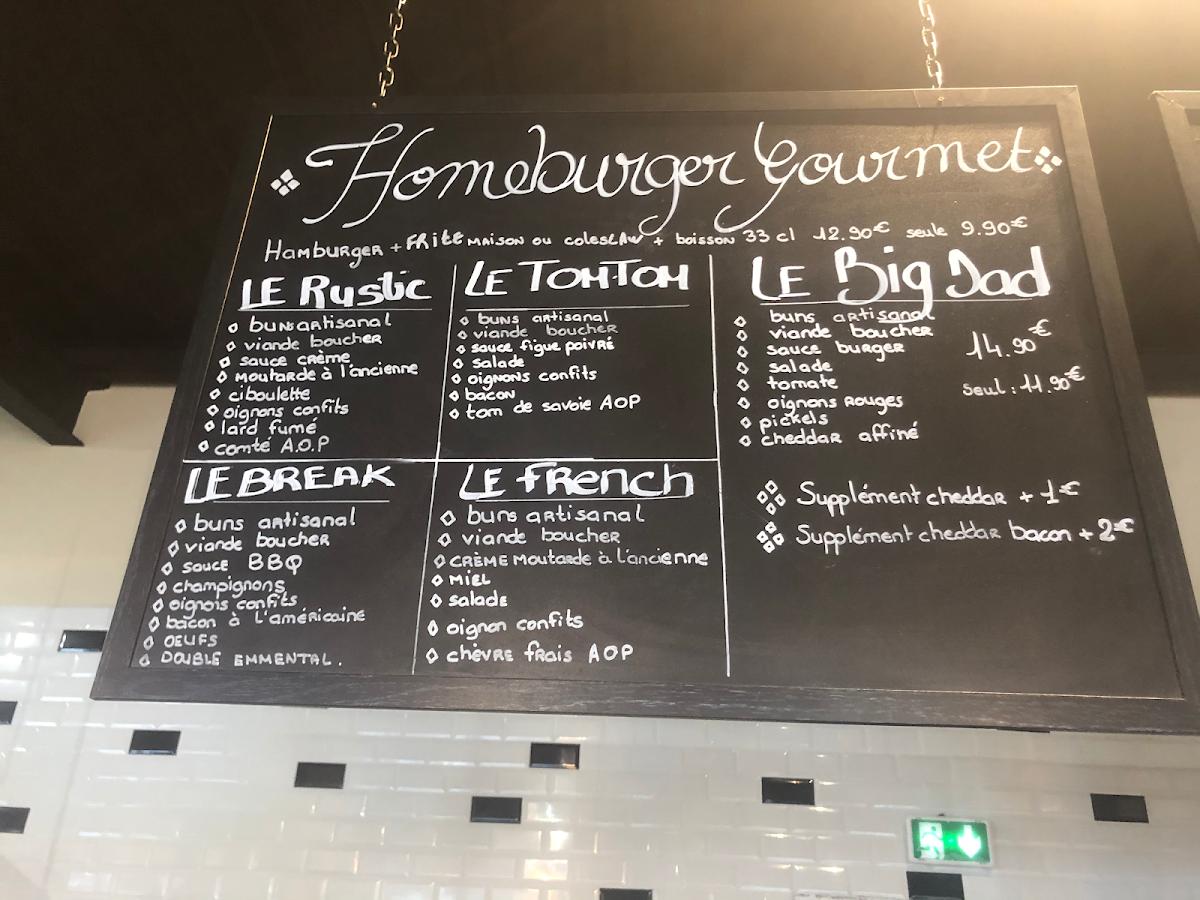 Homeburger Gourmet
Hamburger + Frite maison ou coleslaw + boisson 33 cl 12.90€ seule 9.90€
LE Rustic
buns artisanal
viande boucher
sauce crème
moutarde à l'ancienne
ciboulette
oignons confits
lard fumé
comté A.O.P
LE TOMTOM
buns artisanal
viande boucher
sauce figue poivré
salade
oignons confits
bacon
tom de savoie AOP
LE Big Dad
buns artisanal
viande boucher
sauce burger
salade
tomate
oignons rouges
pickels
cheddar affiné
14.90€
seul : 11.90€
LE BREAK
buns artisanal
viande boucher
sauce BBQ
champignons
oignois confits
bacon à l'américaine
OEUFS
DOUBLE EMMENTAL.
LE French
buns artisanal
viande boucher
CRÈME Moutarde à l'ancienne
MIEL
salade
oignon confits
chèvre frais AOP
Supplément cheddar + 1€
Supplément cheddar bacon + 2€